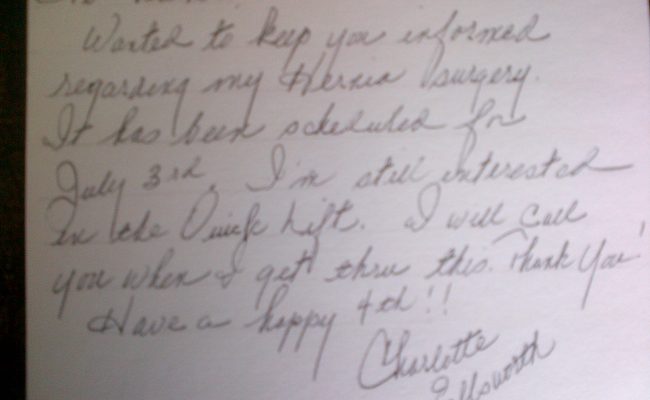 Wanted to keep you informed
regarding my Hernia surgery.
It has been scheduled for
July 3rd. I'm still interested
in the Quick Lift. I will call
you when I get thru this. Thank You!
Have a happy 4th!!
Charlotte
Ellsworth